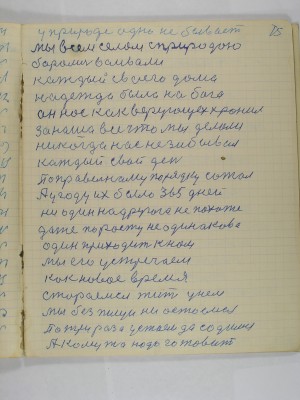 у природе одно не бывает 25
мы всем селом с природою
боролись воевали
каждый своего дома
надежда была на бога
он нас как верующех хронил
за наша все что мы делали
никогда нас не забывал
каждый свой ден
по правельному порядку
А у году их было 365 дней
ни один на другога не похоже
даже по росту не одинакова
один приходит к нам
мы его устречаем
как новое время
стараемся жит у нем
мы без пищи ни остаемся
по три раза у стол да содимся
А кому то надо готовит